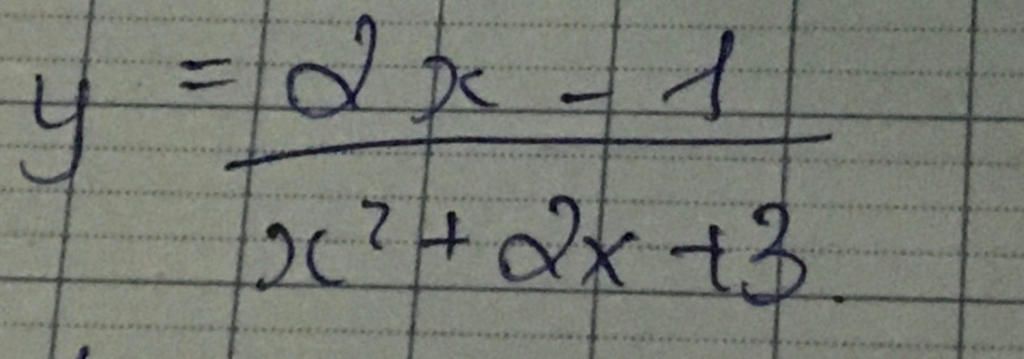 y = 2x - 1
x² + 2x + 3.